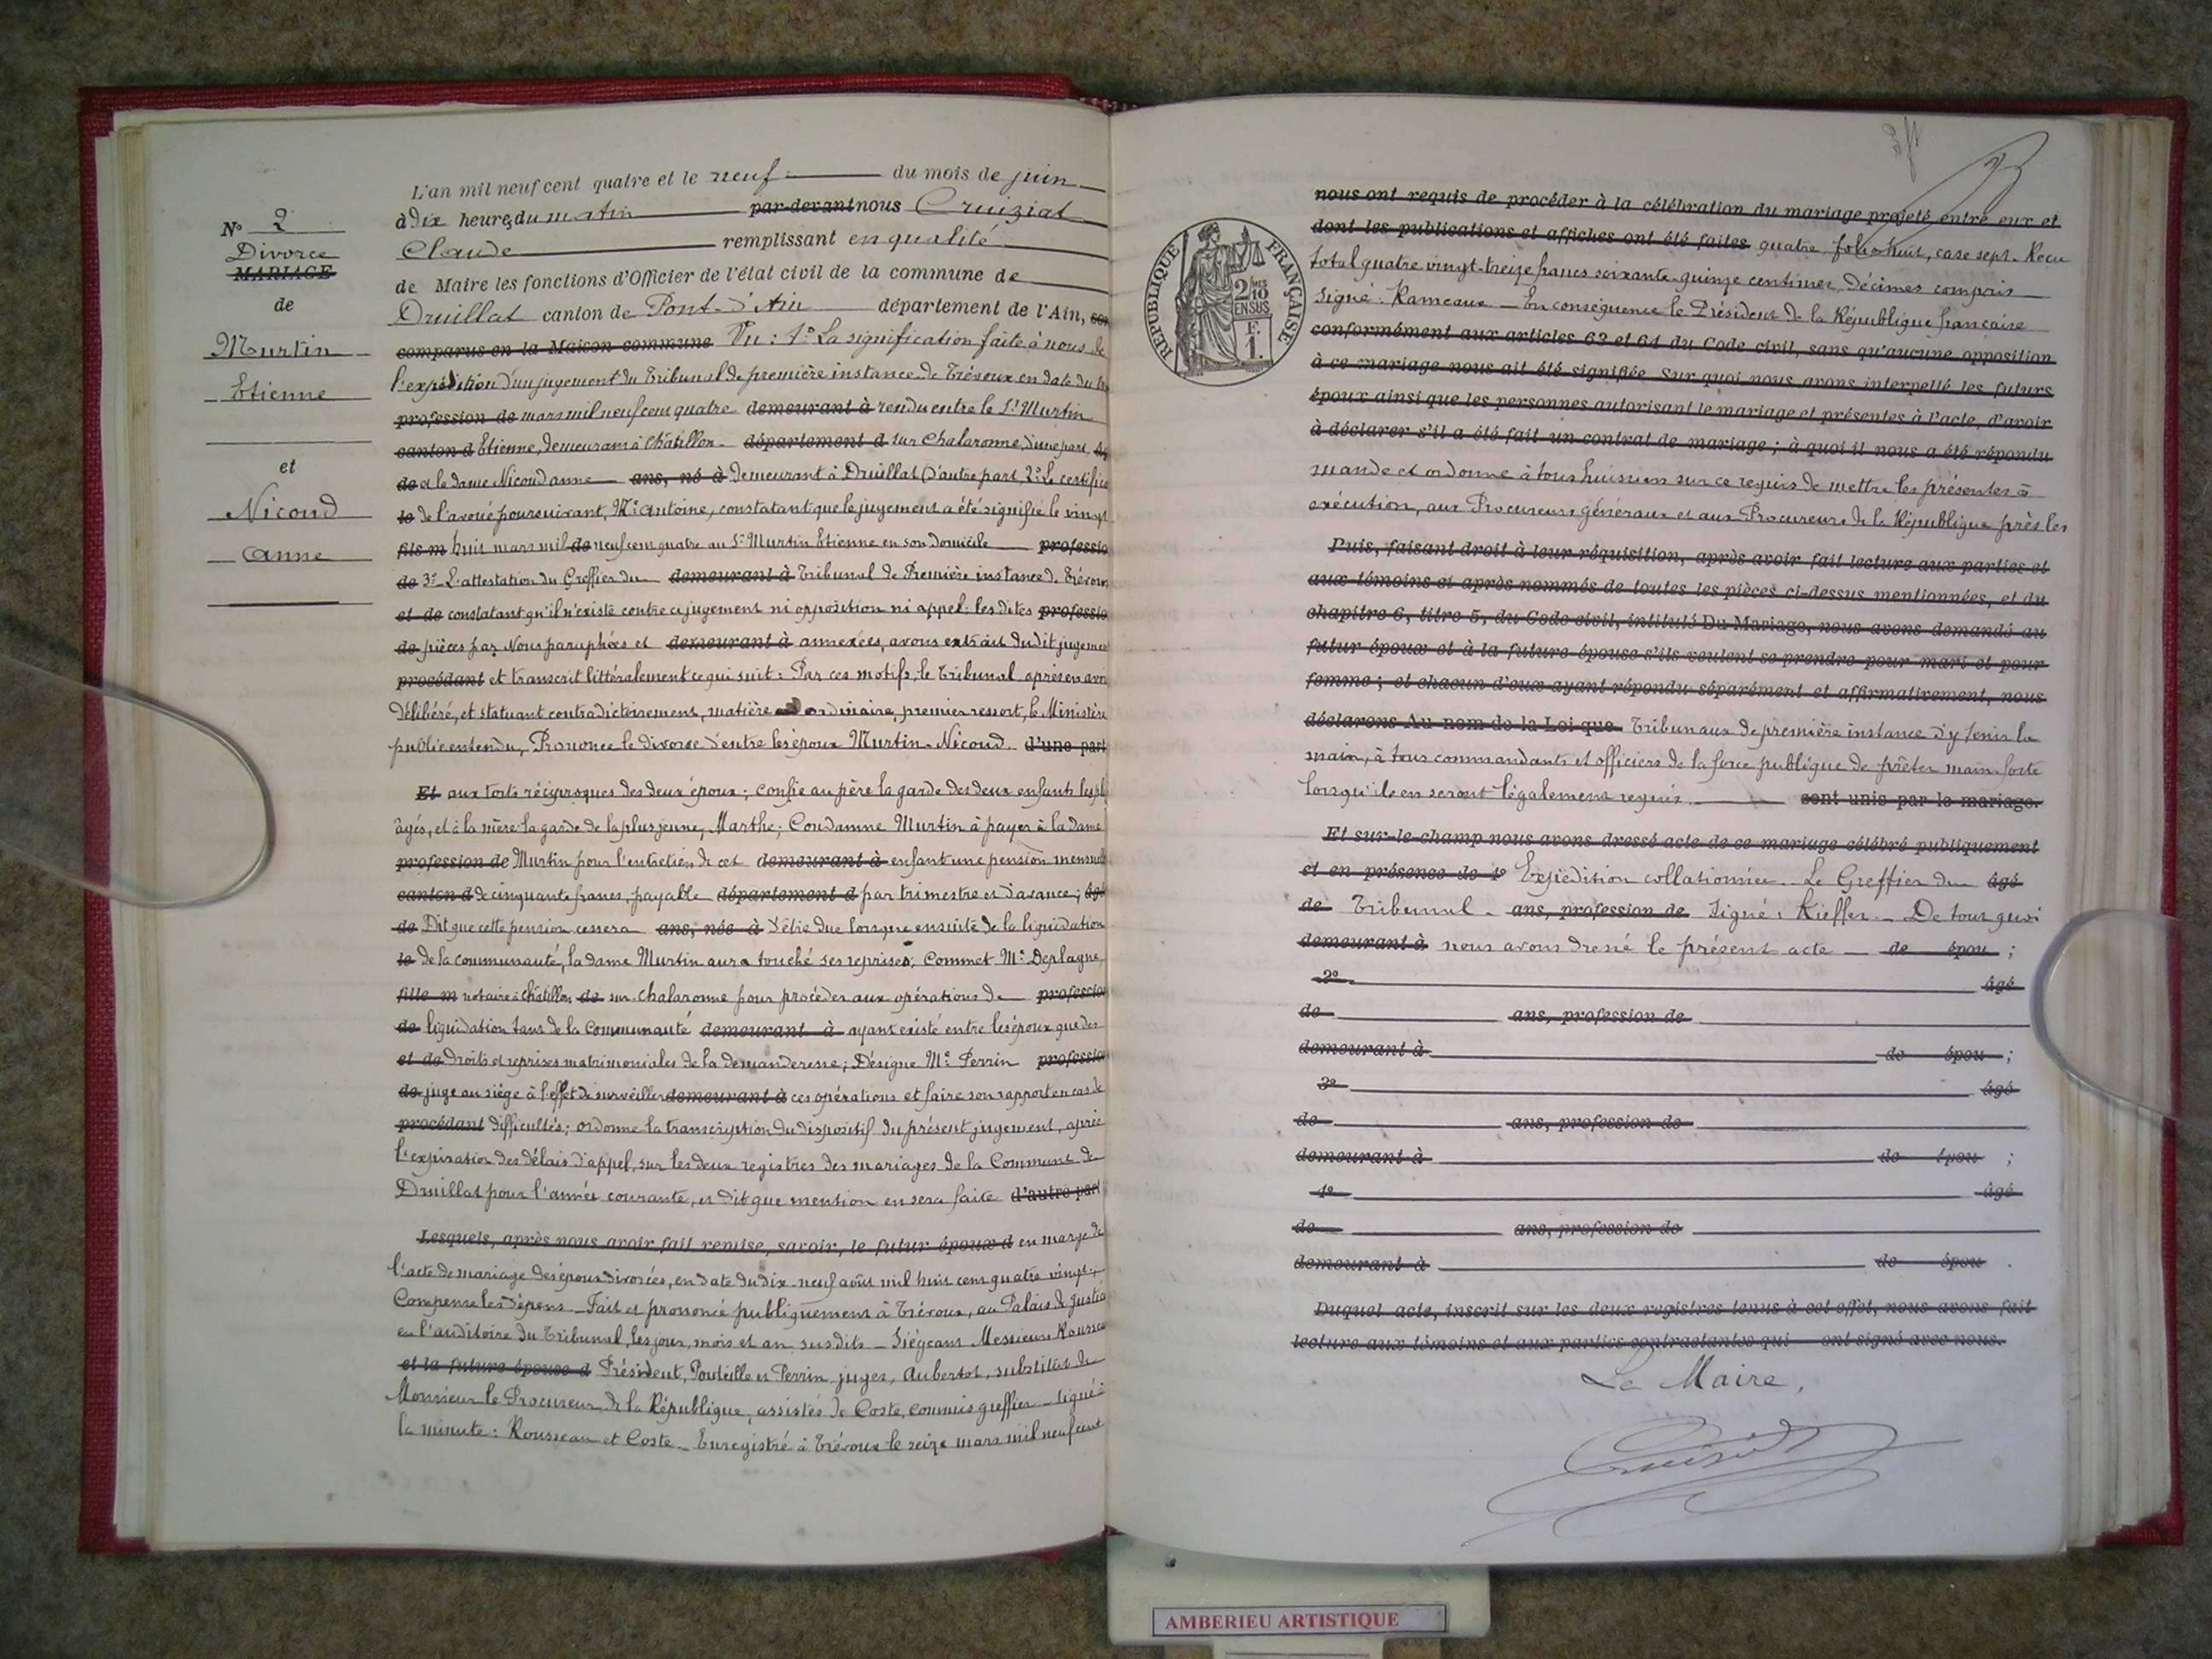 N° 2
Divorce
MARIAGE
de
Murtin
Etienne
et
Nicoud
Anne
L'an mil neuf cent quatre et le neuf du mois de juin
à Dix heures du matin par-devant nous Cruiziat
Claude remplissant en qualité
de Maire les fonctions d'Officier de l'état civil de la commune de
Druillat canton de Pont-d'Ain département de l'Ain, son
comparus en la Maison commune Vu : 1° La signification faite à nous de
l'expédition d'un jugement du Tribunal de première instance de Trévoux en date du
profession de mars mil neuf cent quatre demeurant à rendu entre le Sr Murtin
canton d Etienne, demeurant à Châtillon département d sur Chalaronne, d'une part,
de et la dame Nicoud Anne ans, né à demeurant à Druillat, d'autre part, 2° Le certifica
le de l'avoué poursuivant, Me Antoine, constatant que le jugement a été signifié le vingt
fils m huit mars mil de neuf cent quatre au Sr Murtin Etienne en son domicile professio
de 3° L'attestation du Greffier du demeurant à Tribunal de Première instance de Trévoux
et de constatant qu'il n'existe contre ce jugement ni opposition ni appel ; les dites professio
de pièces par Nous paraphées et demeurant à annexées, avons extrait du dit jugement
procédant et transcrit littéralement ce qui suit : Par ces motifs, le Tribunal après en avoir
délibéré, et statuant contradictoirement, matière ordinaire, premier ressort, le Ministère
public entendu, Prononce le divorce d'entre les époux Murtin-Nicoud d'une part
Et aux torts réciproques des deux époux ; confie au père la garde des deux enfants les pl
âgés, et à la mère la garde de la plus jeune, Marthe ; Condamne Murtin à payer à la dame
profession de Murtin pour l'entretien de cet demeurant à enfant une pension mensuel
canton d de cinquante francs, payable département d par trimestre et d'avance ; âgé
de Dit que cette pension cessera ans, née à d'être due lorsque ensuite de la liquidation
le de la communauté, la dame Murtin aura touché ses reprises ; Commet Me Deplagne
fille m notaire à Châtillon de sur Chalaronne pour procéder aux opérations de profession
de liquidation tant de la Communauté demeurant à ayant existé entre les époux que des
et de droits et reprises matrimoniales de la demanderesse ; Désigne Mr Perrin profession
de juge au siège à l'effet de surveiller demeurant à ces opérations et faire son rapport en cas de
procédant difficultés ; ordonne la transcription du dispositif du présent jugement, après
l'expiration des délais d'appel, sur les deux registres des mariages de la Commune de
Druillat pour l'année courante, et dit que mention en sera faite d'autre part
Lesquels, après nous avoir fait remise, savoir, le futur époux d en marge de
l'acte de mariage des époux divorcés, en date du dix-neuf août mil huit cent quatre vingt,
Compense les dépens. Fait et prononcé publiquement à Trévoux, au Palais de Justice
en l'auditoire du Tribunal, les jour, mois et an susdits. Siégeant Messieurs Rousse
et la future épouse d Président, et Perrin juges, Aubertot, substitut de
Monsieur le Procureur de la République, assistés de Coste, commis greffier. Signé à
la minute : Rousseau et Coste. Enregistré à Trévoux le seize mars mil neuf cent
REPUBLIQUE FRANÇAISE
2/10 EN SUS
F. 1.
nous ont requis de procéder à la célébration du mariage projeté entre eux et
dont les publications et affiches ont été faites quatre, folio huit, case sept. Reçu
total quatre vingt-treize francs soixante-quinze centimes, décimes compris
Signé : Rameaux. En conséquence le Président de la République française
conformément aux articles 63 et 64 du Code civil, sans qu'aucune opposition
à ce mariage nous ait été signifiée. Sur quoi nous avons interpellé les futurs
époux ainsi que les personnes autorisant le mariage et présentes à l'acte, d'avoir
à déclarer s'il a été fait un contrat de mariage ; à quoi il nous a été répondu
mande et ordonne à tous huissiers sur ce requis de mettre les présentes à
exécution, aux Procureurs généraux et aux Procureurs de la République près les
Puis, faisant droit à leur réquisition, après avoir fait lecture aux parties et
aux témoins ci-après nommés de toutes les pièces ci-dessus mentionnées, et du
chapitre 6, titre 5, du Code civil, intitulé Du Mariage, nous avons demandé au
futur époux et à la future épouse s'ils veulent se prendre pour mari et pour
femme ; et chacun d'eux ayant répondu séparément et affirmativement, nous
déclarons Au nom de la Loi que Tribunaux de première instance d'y tenir la
main, à tous commandants et officiers de la force publique de prêter main-forte
lorsqu'ils en seront légalement requis. sont unis par le mariage.
Et sur-le-champ nous avons dressé acte de ce mariage célébré publiquement
et en présence de 1° Expédition collationnée. Le Greffier du âgé
de Tribunal. ans, profession de Signé : Kieffer. De tout quoi
demeurant à nous avons dressé le présent acte de épou ;
2° âgé
de ans, profession de
demeurant à de épou ;
3° âgé
de ans, profession de
demeurant à de épou ;
4° âgé
de ans, profession de
demeurant à de épou .
Duquel acte, inscrit sur les deux registres tenus à cet effet, nous avons fait
lecture aux témoins et aux parties contractantes qui ont signé avec nous.
Le Maire,
Cruiziat
AMBERIEU ARTISTIQUE